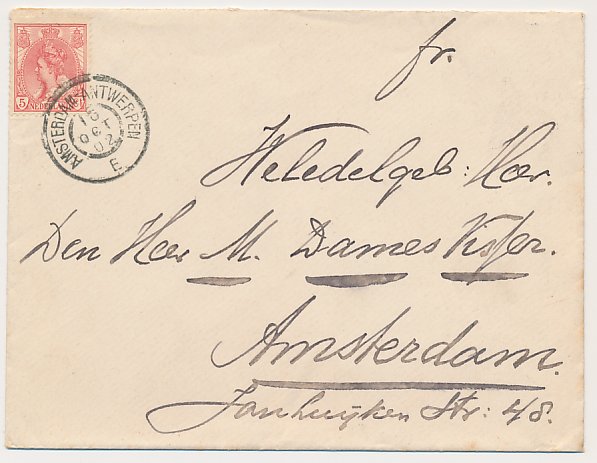 5 NEDERLAND
AMSTERDAM-ANTWERPEN
15
OCT
02
E
fr.
Weledelgeb: Heer.
Den Heer M. Dames Visser.
Amsterdam.
Janluyken Str: 48.